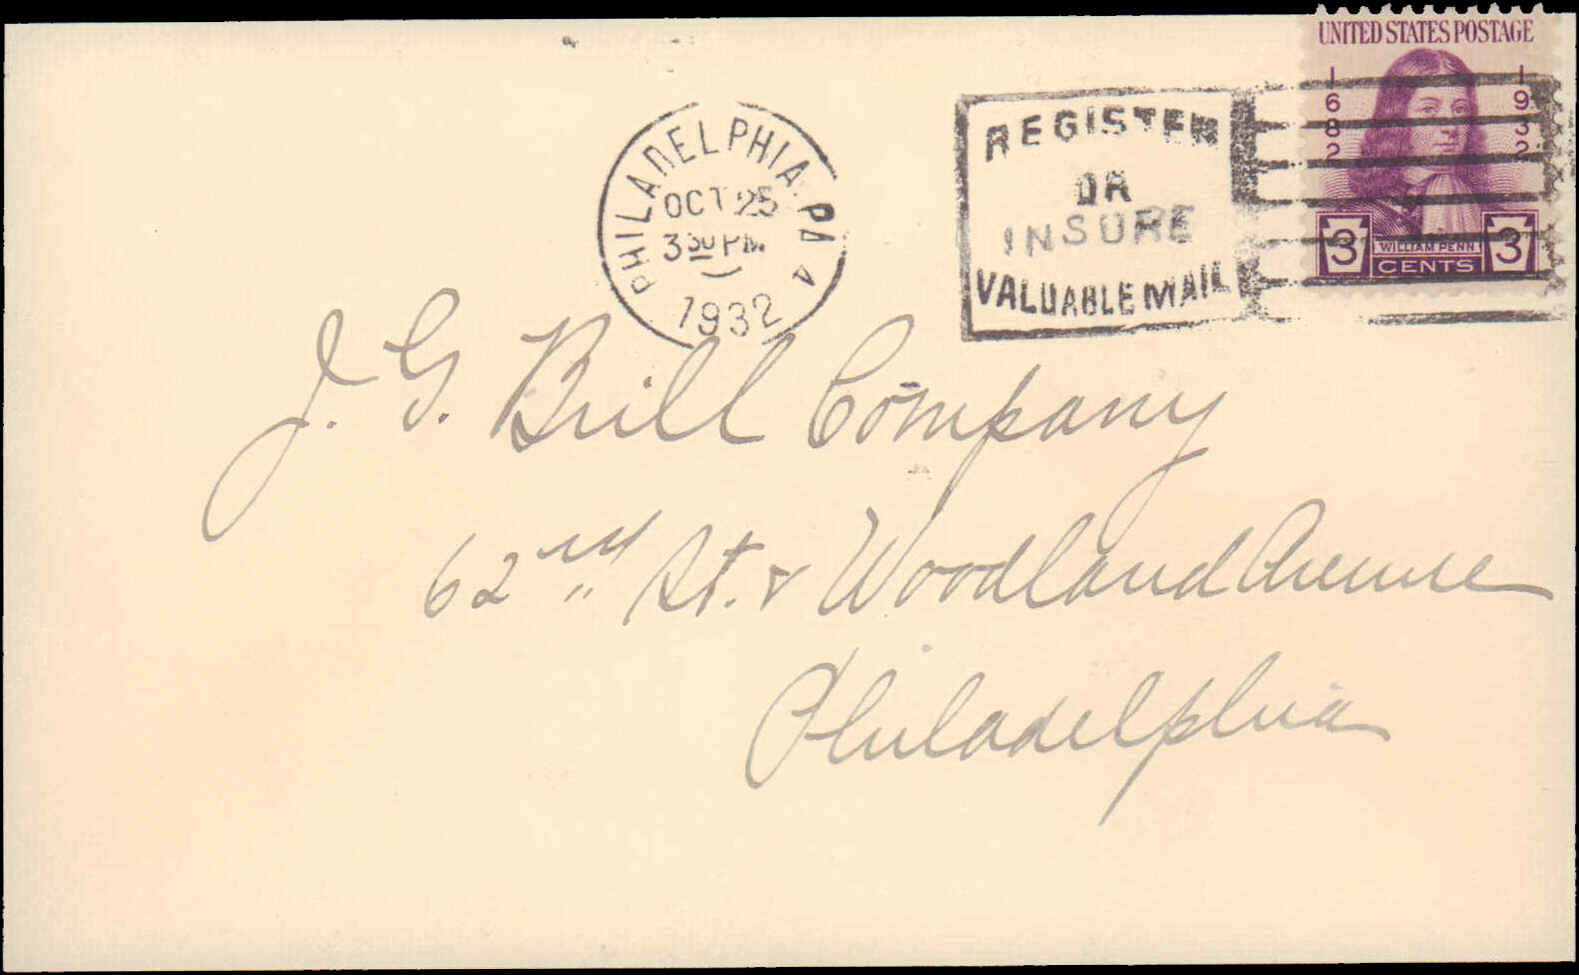 UNITED STATES POSTAGE
1682
1932
3
WILLIAM PENN
CENTS
3
PHILADELPHIA, PA
OCT 25
3 30 PM
1932
4
REGISTER
OR
INSURE
VALUABLE MAIL
J. G. Brill Company
62nd St. & Woodland Avenue
Philadelphia